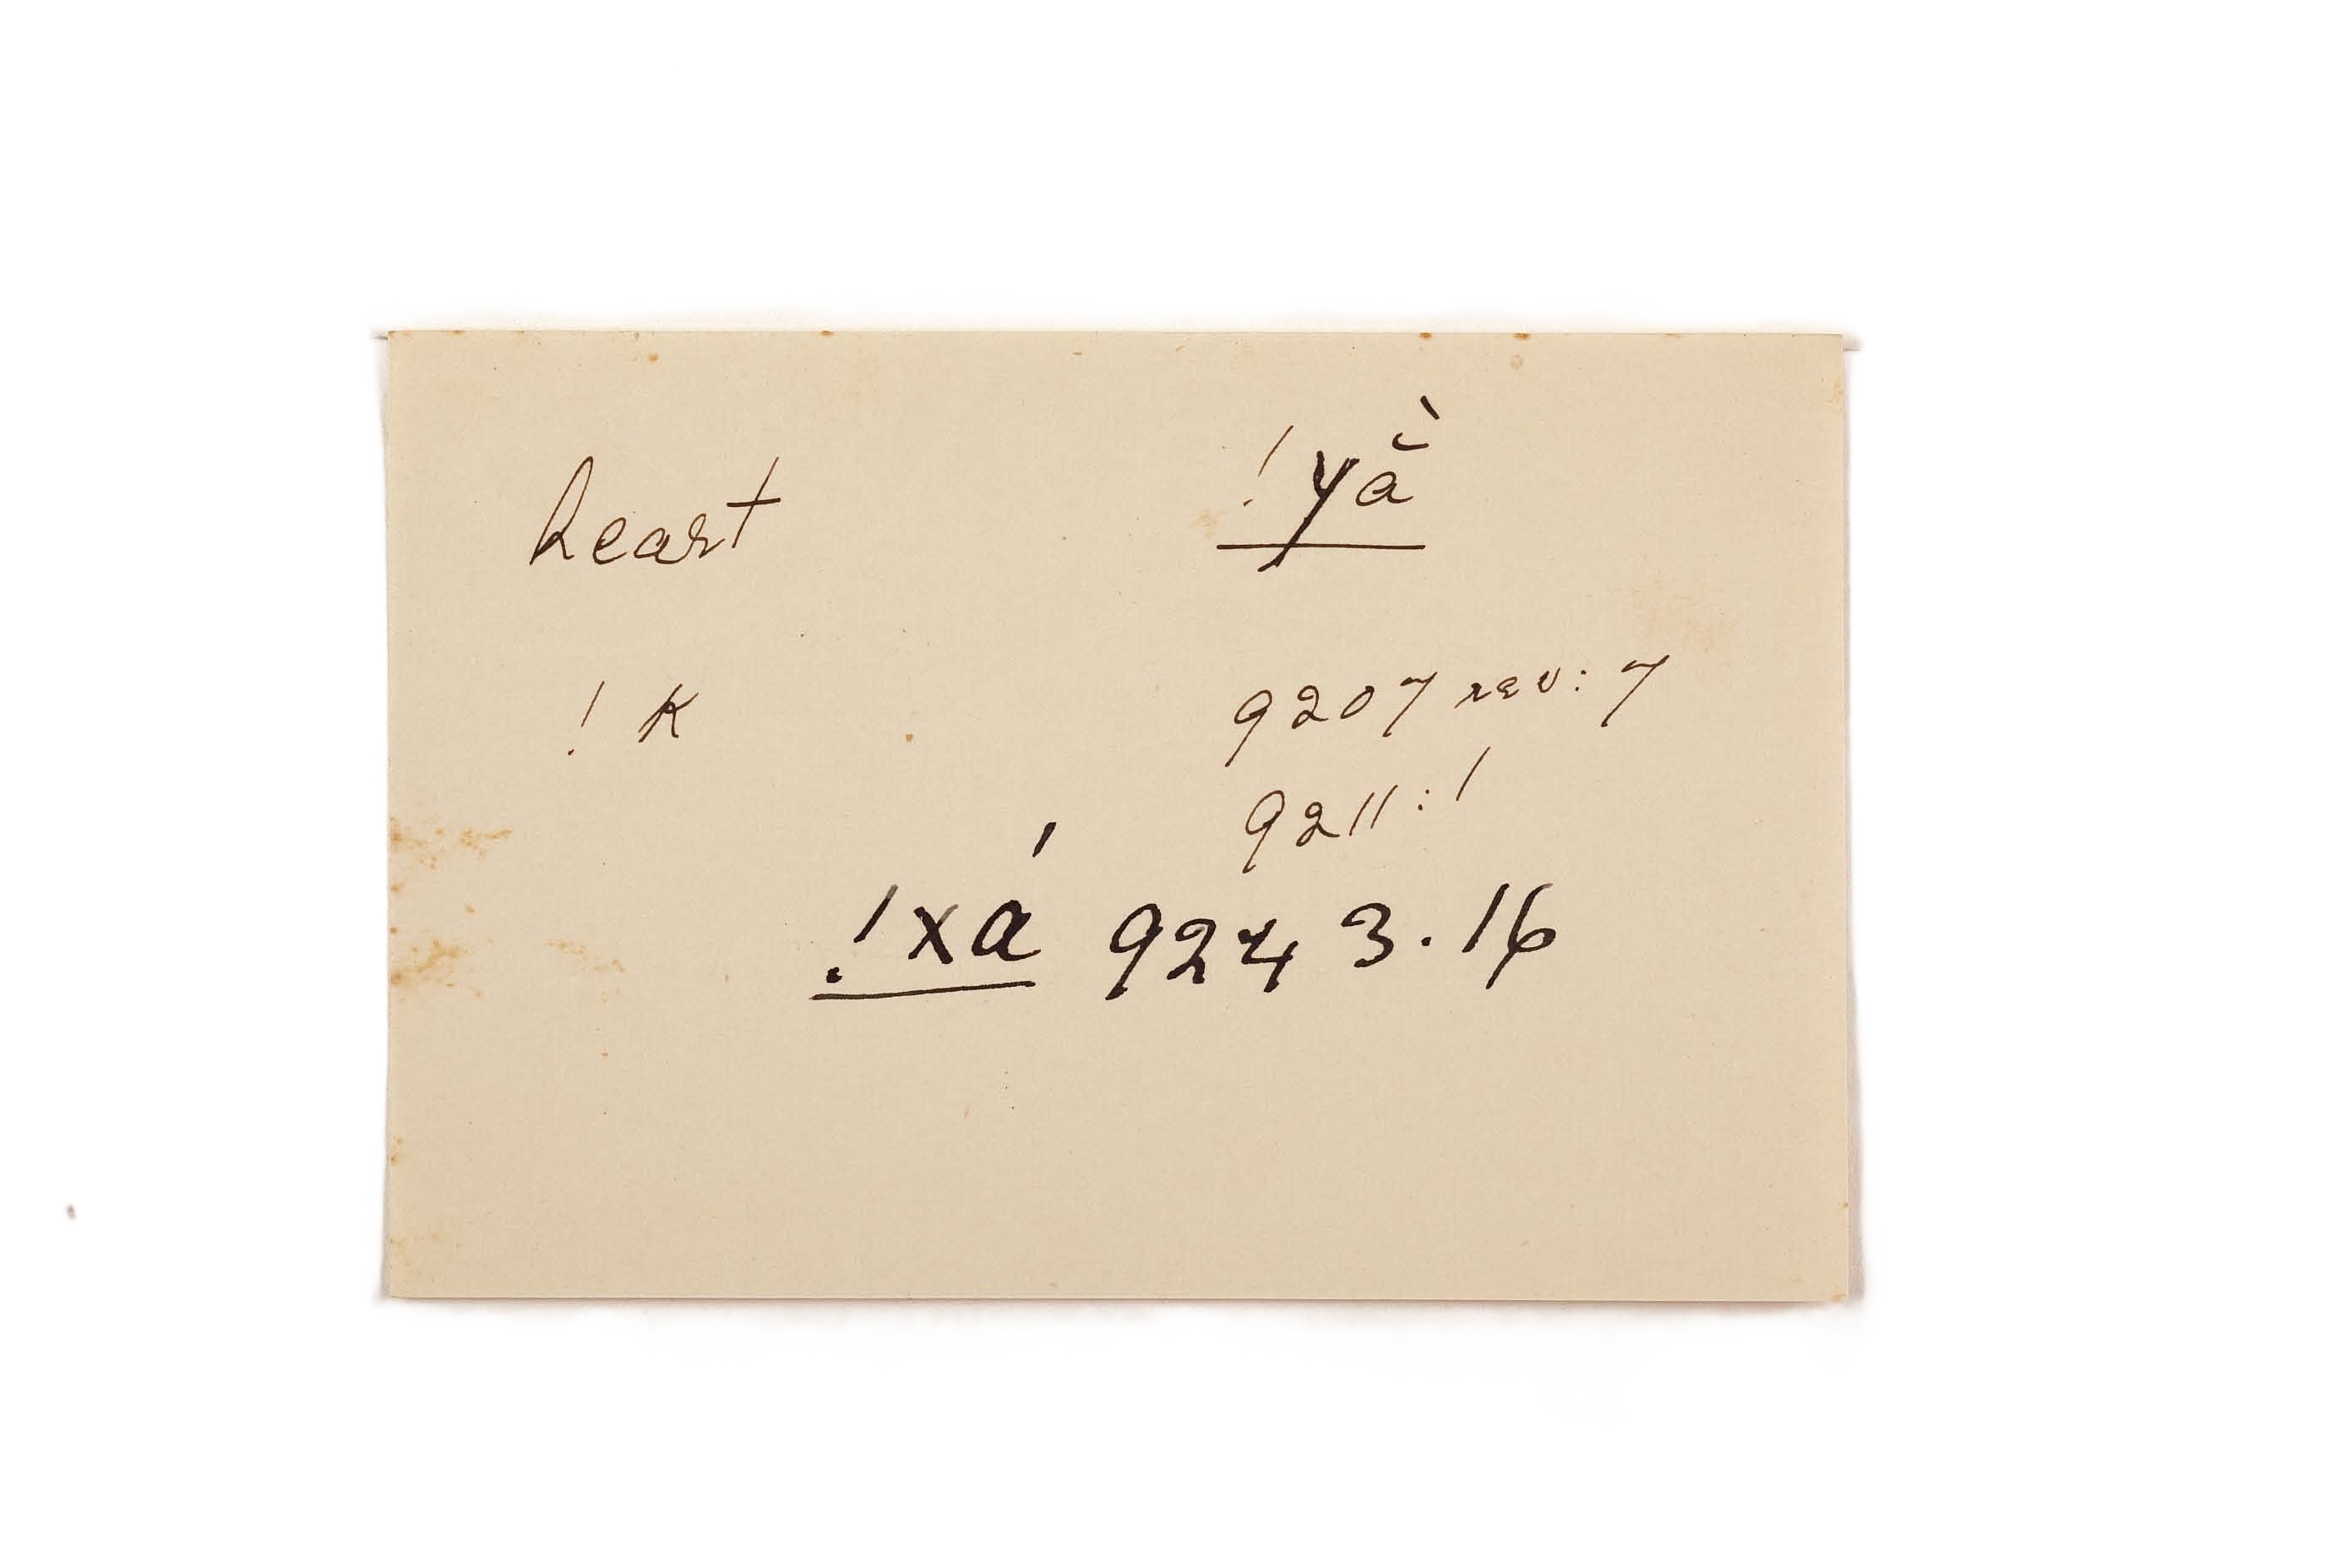 heart !yằ
! K 9207 rev: 7
9211: 1
!xá 9243.16